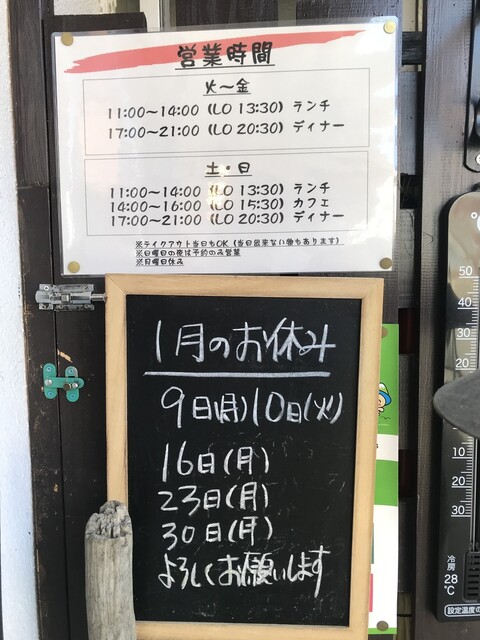 営業時間
火～金
11:00～14:00 (LO 13:30) ランチ
17:00～21:00 (LO 20:30) ディナー
土・日
11:00～14:00 (LO 13:30) ランチ
14:00～16:00 (LO 15:30) カフェ
17:00～21:00 (LO 20:30) ディナー
※テイクアウト当日もOK (当日出来ない物もあります)
※日曜日の夜は予約のみ営業
※月曜日休み
1月のお休み
9日(月)10日(火)
16日(月)
23日(月)
30日(月)
よろしくお願いします
℃
50
40
30
20
10
10
20
30
冷房
28℃
設定温度の